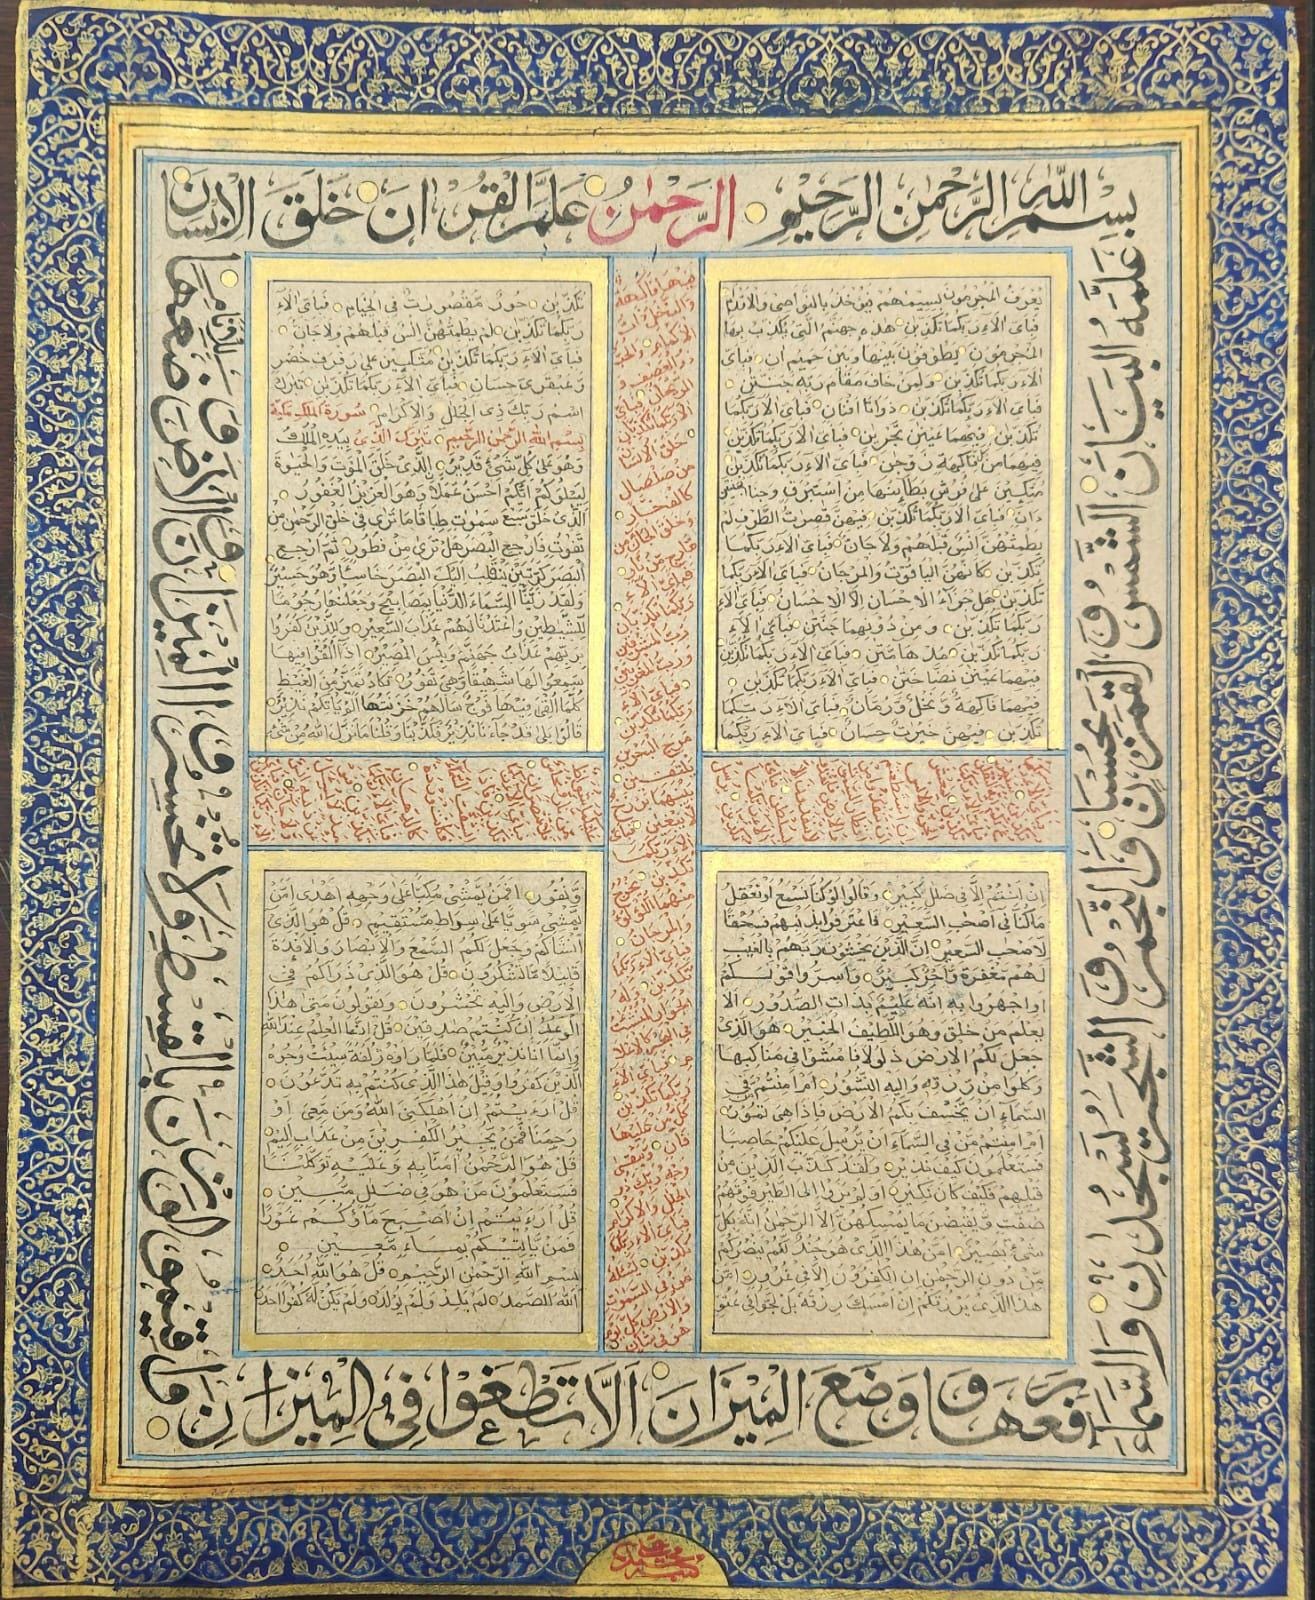 بسم الله الرحمن الرحيم الرحمن علم القران خلق الانسان
علمه البيان الشمس والقمر بحسبان والنجم والشجر يسجدان والسماء
رفعها ووضع الميزان الا تطغوا في الميزان
واقيموا الوزن بالقسط ولا تخسروا الميزان والارض وضعها للانام
يعرف المجرمون بسيمهم فيؤخذ بالنواصي والاقدام
فباي الاء ربكما تكذبن هذه جهنم التي يكذب بها
المجرمون يطوفون بينها وبين حميم ان فباي
الاء ربكما تكذبن ولمن خاف مقام ربه جنتن
فباي الاء ربكما تكذبن ذواتا افنان فباي الاء ربكما
تكذبن فيهما عينن تجرين فباي الاء ربكما تكذبن
فيهما من كل فاكهة زوجن فباي الاء ربكما تكذبن
متكين على فرش بطائنها من استبرق وجنا الجنتين
دان فباي الاء ربكما تكذبن فيهن قصرت الطرف لم
يطمثهن انس قبلهم ولا جان فباي الاء ربكما
تكذبن كانهن الياقوت والمرجان فباي الاء ربكما
تكذبن هل جزاء الاحسان الا الاحسان فباي الاء
ربكما تكذبن ومن دونهما جنتن فباي الاء
ربكما تكذبن مدهامتن فباي الاء ربكما تكذبن
فيهما عينن نضاختن فباي الاء ربكما تكذبن
فيهما فاكهة ونخل ورمان فباي الاء ربكما
تكذبن فيهن خيرت حسان فباي الاء ربكما
تكذبن حور مقصورت في الخيام فباي الاء
ربكما تكذبن لم يطمثهن انس قبلهم ولا جان
فباي الاء ربكما تكذبن متكين على رفرف خضر
وعبقري حسان فباي الاء ربكما تكذبن تبرك
اسم ربك ذي الجلل والاكرام سورة الملك مكية
بسم الله الرحمن الرحيم تبرك الذي بيده الملك
وهو على كل شيء قدير الذي خلق الموت والحيوة
ليبلوكم ايكم احسن عملا وهو العزيز الغفور
الذي خلق سبع سموت طباقا ما ترى في خلق الرحمن من
تفوت فارجع البصر هل ترى من فطور ثم ارجع
البصر كرتين ينقلب اليك البصر خاسئا وهو حسير
ولقد زينا السماء الدنيا بمصابيح وجعلنها رجوما
للشيطين واعتدنا لهم عذاب السعير وللذين كفروا
بربهم عذاب جهنم وبئس المصير اذا القوا فيها
سمعوا لها شهيقا وهي تفور تكاد تميز من الغيظ
كلما القي فيها فوج سالهم خزنتها الم ياتكم نذير
قالوا بلى قد جاءنا نذير فكذبنا وقلنا ما نزل الله من شيء
ان انتم الا في ضلل كبير وقالوا لو كنا نسمع او نعقل
ما كنا في اصحب السعير فاعترفوا بذنبهم فسحقا
لاصحب السعير ان الذين يخشون ربهم بالغيب
لهم مغفرة واجر كبير واسروا قولكم
او اجهروا به انه عليم بذات الصدور الا
يعلم من خلق وهو اللطيف الخبير هو الذي
جعل لكم الارض ذلولا فامشوا في مناكبها
وكلوا من رزقه واليه النشور امنتم من في
السماء ان يخسف بكم الارض فاذا هي تمور
ام امنتم من في السماء ان يرسل عليكم حاصبا
فستعلمون كيف نذير ولقد كذب الذين من
قبلهم فكيف كان نكير اولم يروا الى الطير فوقهم
صفت ويقبضن ما يمسكهن الا الرحمن انه بكل
شيء بصير امن هذا الذي هو جند لكم ينصركم
من دون الرحمن ان الكفرون الا في غرور امن
هذا الذي يرزقكم ان امسك رزقه بل لجوا في عتو
ونفور افمن يمشي مكبا على وجهه اهدى امن
يمشي سويا على صراط مستقيم قل هو الذي
انشاكم وجعل لكم السمع والابصار والافدة
قليلا ما تشكرون قل هو الذي ذراكم في
الارض واليه تحشرون ويقولون متى هذا
الوعد ان كنتم صدقين قل انما العلم عند الله
وانما انا نذير مبين فلما راوه زلفة سيئت وجوه
الذين كفروا وقيل هذا الذي كنتم به تدعون
قل ارءيتم ان اهلكني الله ومن معي او
رحمنا فمن يجير الكفرين من عذاب اليم
قل هو الرحمن امنا به وعليه توكلنا
فستعلمون من هو في ضلل مبين
قل ارءيتم ان اصبح ماؤكم غورا
فمن ياتيكم بماء معين
بسم الله الرحمن الرحيم قل هو الله احد
الله الصمد لم يلد ولم يولد ولم يكن له كفوا احد
فيها فاكهة
والنخل ذات
الاكمام والحب
ذو العصف و
الريحان فباي
الاء ربكما تكذبن
خلق الانسان
من صلصال
كالفخار
وخلق الجان من
مارج من نار
فباي الاء
ربكما تكذبان
رب المشرقين
ورب المغربين
فباي الاء
ربكما تكذبن
مرج البحرين
يلتقين
بينهما برزخ
لا يبغين فباي
الاء ربكما
تكذبن يخرج
منهما اللؤلؤ
والمرجان
فباي الاء ربكما
تكذبن وله
الجوار المنشئت
في البحر كالاعلا
م فباي الاء
ربكما تكذبن
كل من عليها
فان ويبقى
وجه ربك ذو
الجلل والاكرام
فباي الاء ربكما
تكذبن يسئله
من في السموت
والارض كل يوم
هو في شان